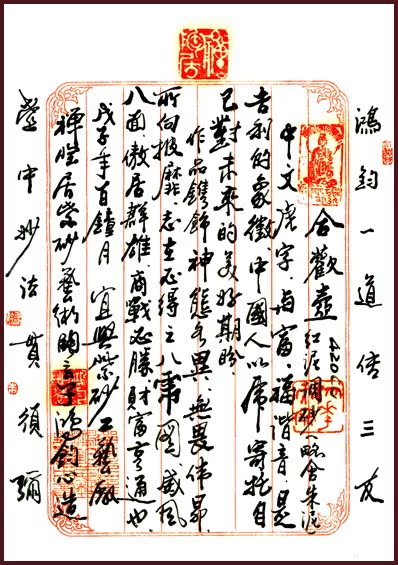 鴻鈞一道三友
合歡壺 紅泥調砂(略含朱泥)
420CC
中文虎字与富、福諧音、是
吉利的象徵,中國人以虎寄托自
己對未來的美好期盼
作品鐫飾神態各異、無畏
所向披靡、志在必得之八虎图、威风
八面、傲居群雄、商戰必勝財富亨通也、
戊子年百鐘月 宜興紫砂工藝廠
禪居紫砂藝術陶 鴻鈞心造
壺中妙法貫須彌